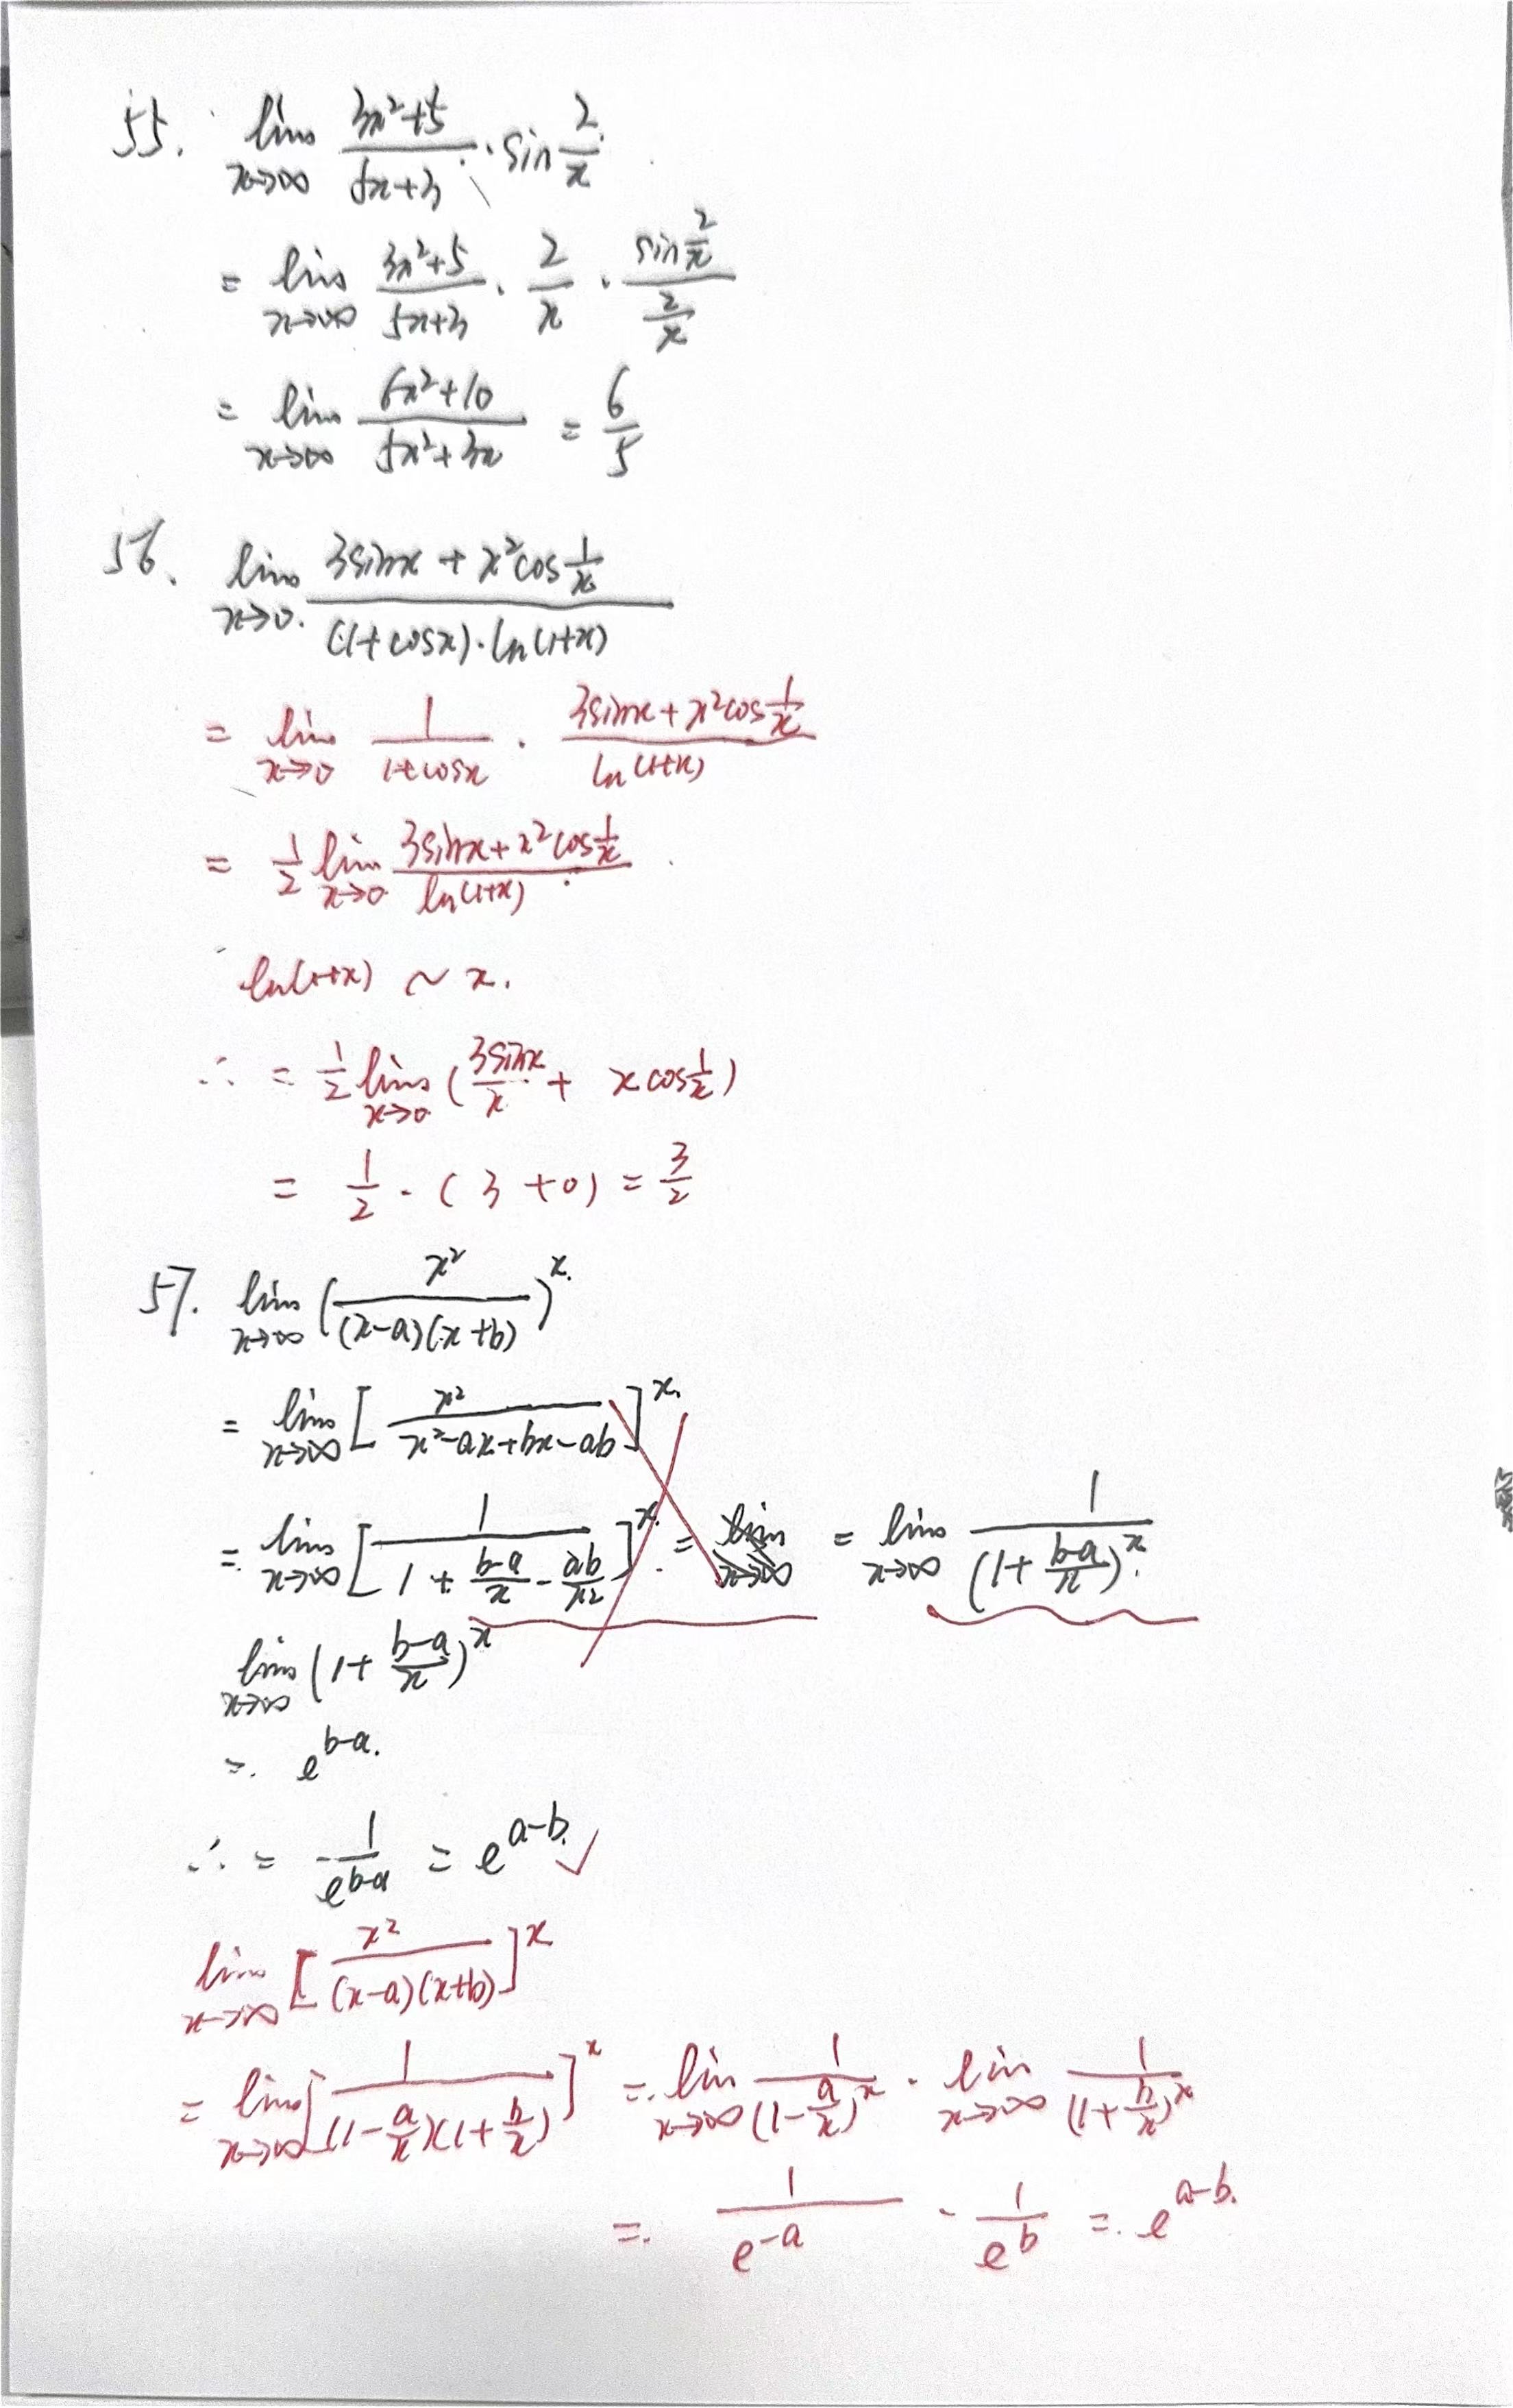 55. lim x→∞ (3x²+5)/(5x+3) · sin 2/x
= lim x→∞ (3x²+5)/(5x+3) · 2/x · (sin 2/x)/(2/x)
= lim x→∞ (6x²+10)/(5x²+3x) = 6/5
56. lim x→0 (3sinx + x²cos 1/x)/((1+cosx)·ln(1+x))
= lim x→0 1/(1+cosx) · (3sinx + x²cos 1/x)/(ln(1+x))
= 1/2 lim x→0 (3sinx + x²cos 1/x)/(ln(1+x))
ln(1+x) ~ x.
∴ = 1/2 lim x→0 (3sinx/x + x cos 1/x)
= 1/2 · (3+0) = 3/2
57. lim x→∞ (x²/((x-a)(x+b)))^x
= lim x→∞ [x²/(x²-ax+bx-ab)]^x
= lim x→∞ [1/(1 + (b-a)/x - ab/x²)]^x = lim x→∞ = lim x→∞ 1/(1 + (b-a)/x)^x
lim x→∞ (1 + (b-a)/x)^x
= e^(b-a).
∴ = 1/e^(b-a) = e^(a-b). ✓
lim x→∞ [x²/((x-a)(x+b))]^x
= lim x→∞ [1/((1-a/x)(1+b/x))]^x = lim x→∞ 1/(1-a/x)^x · lim x→∞ 1/(1+b/x)^x
= 1/e^(-a) · 1/e^b = e^(a-b).